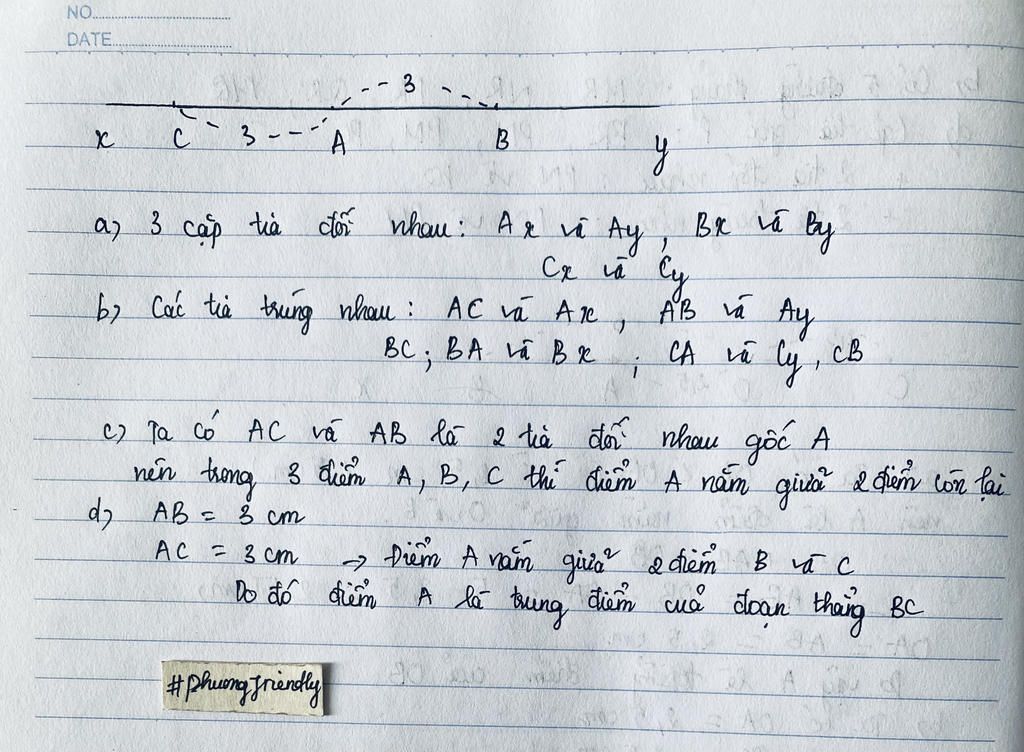 NO
DATE
3
3
x C A B y
a) 3 cặp tia đối nhau: Ax và Ay, Bx và By
Cx và Cy
b) Các tia trùng nhau: AC và Ax, AB và Ay
BC; BA và Bx; CA và Cy, CB
c) Ta có AC và AB là 2 tia đối nhau gốc A
nên trong 3 điểm A, B, C thì điểm A nằm giữa 2 điểm còn lại
d) AB = 3 cm
AC = 3 cm → Điểm A nằm giữa 2 điểm B và C
Do đó điểm A là trung điểm của đoạn thẳng BC
#phuongfriendly